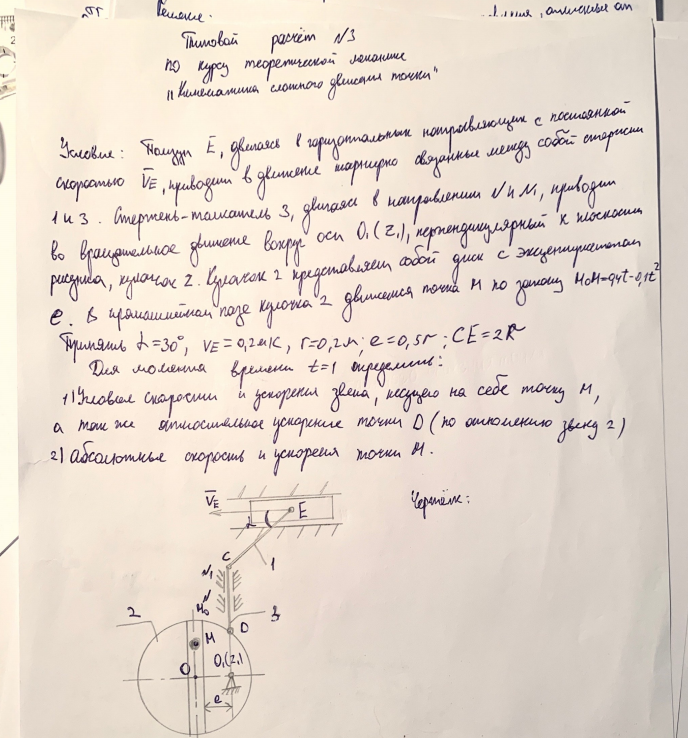 Решение.
Типовой расчёт N3
по курсу теоретической механике
"Кинематика сложного движения точки"
Условие: Ползун E, двигаясь в горизонтальных направляющих с постоянной
скоростью V̅E, приводит в движение шарнирно связанные между собой стержни
1 и 3. Стержень-толкатель 3, двигаясь в направлении N и N₁, приводит
во вращательное движение вокруг оси O₁(Z₁), перпендикулярный к плоскости
рисунка, кулачок 2. Кулачок 2 представляет собой диск с эксцентриситетом
e. В прямолинейном пазе кулачка 2 движется точка M по закону MoM=0,4t-0,1t²
Принять α=30°, VE=0,2м/с, r=0,2м; e=0,5r; CE=2R
Для момента времени t=1 определить:
1) Угловые скорости и ускорения звена, несущего на себе точку M,
а так же относительное ускорение точки D (по отношению звену 2)
2) Абсолютные скорость и ускорения точки M.
Чертёж:
V̅E
α
E
C
1
N₁
N
Mo
2
3
M
D
O
O₁(Z₁)
e